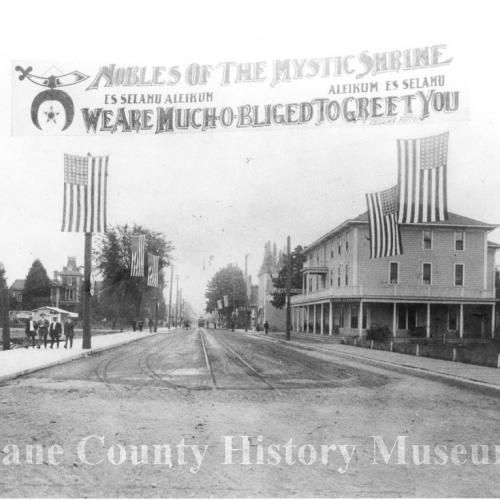 NOBLES OF THE MYSTIC SHRINE
ES SELAMU ALEIKUM ALEIKUM ES SELAMU
WE ARE MUCH-O-BLIGED TO GREET YOU
ane County History Museum